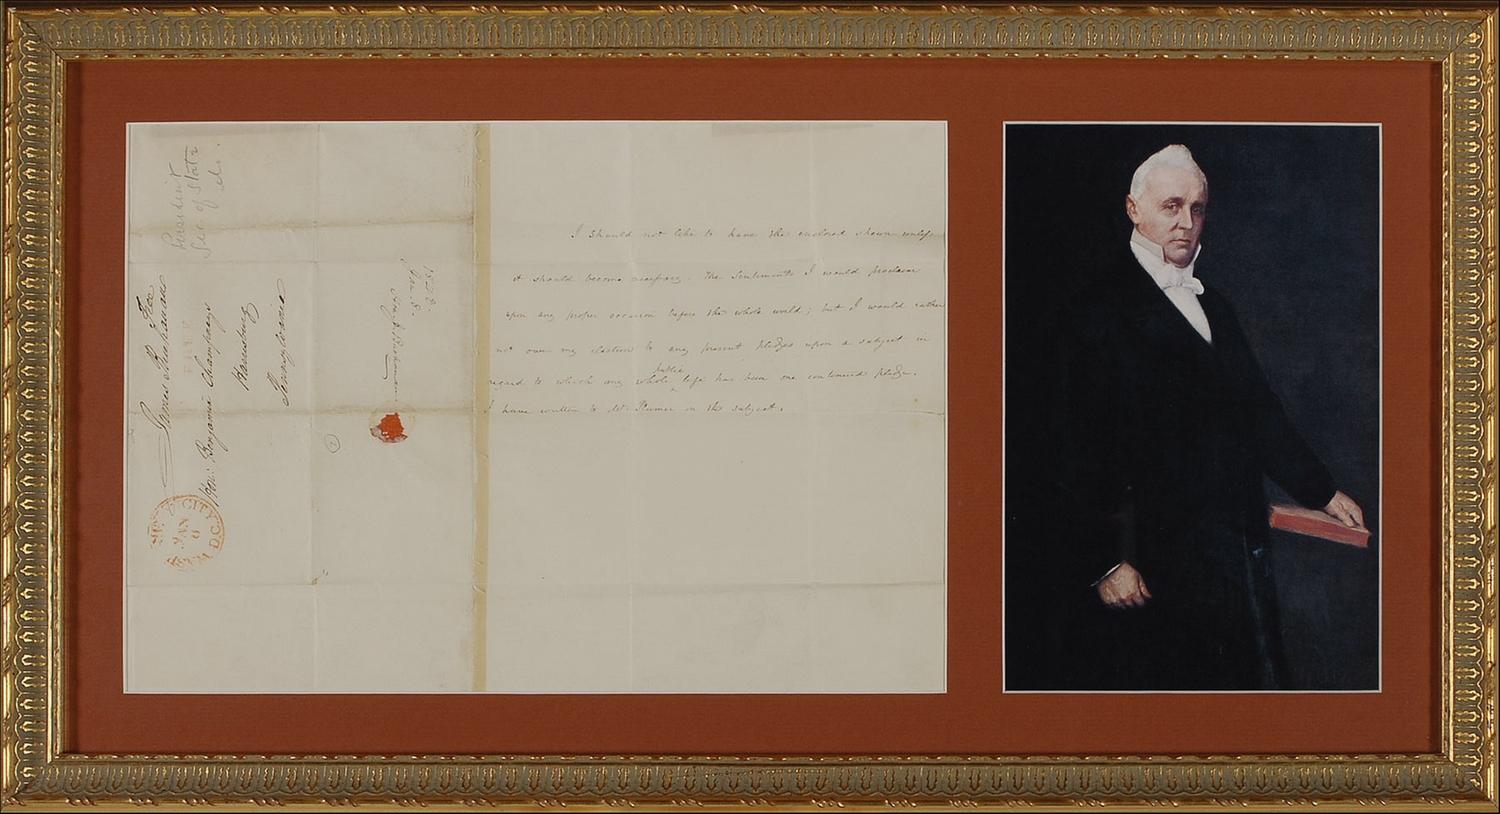 President
Sec of State
&c.
James Buchanan Free
FREE
Hon: Benjamin Champneys
Harrisburg
Pennsylvania
CITY
JAN
6
D.C.
1843
Jan. 5.
I should not like to have the enclosed shown unless
it should become necessary. The sentiments I would proclaim
upon any proper occasion before the whole world; but I would rather
not owe my election to any present pledges upon a subject in
public
regard to which my whole life has been one continued pledge.
I have written to Mr. Plumer on the subject.